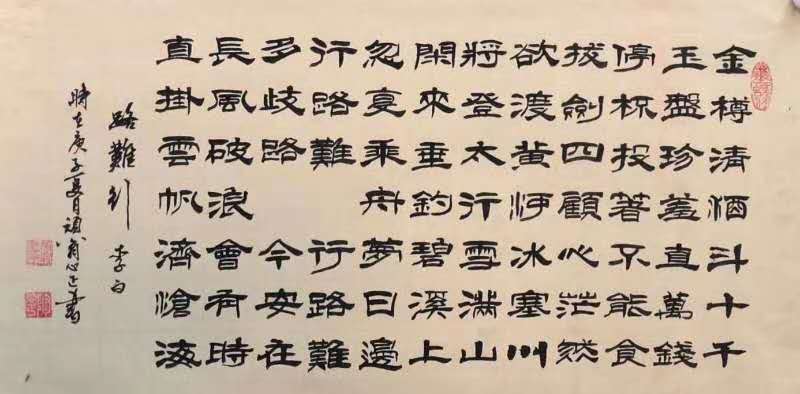 金樽清酒斗十千
玉盤珍羞直萬錢
停杯投著不能食
拔劍四顧心茫然
欲渡黃河冰塞川
將登太行雪滿山
閑來垂釣碧溪上
忽复乘舟夢日邊
行路難 行路難
多歧路 今安在
長風破浪會有時
直掛雲帆濟滄海
路難行 李白
時在庚子夏月 書